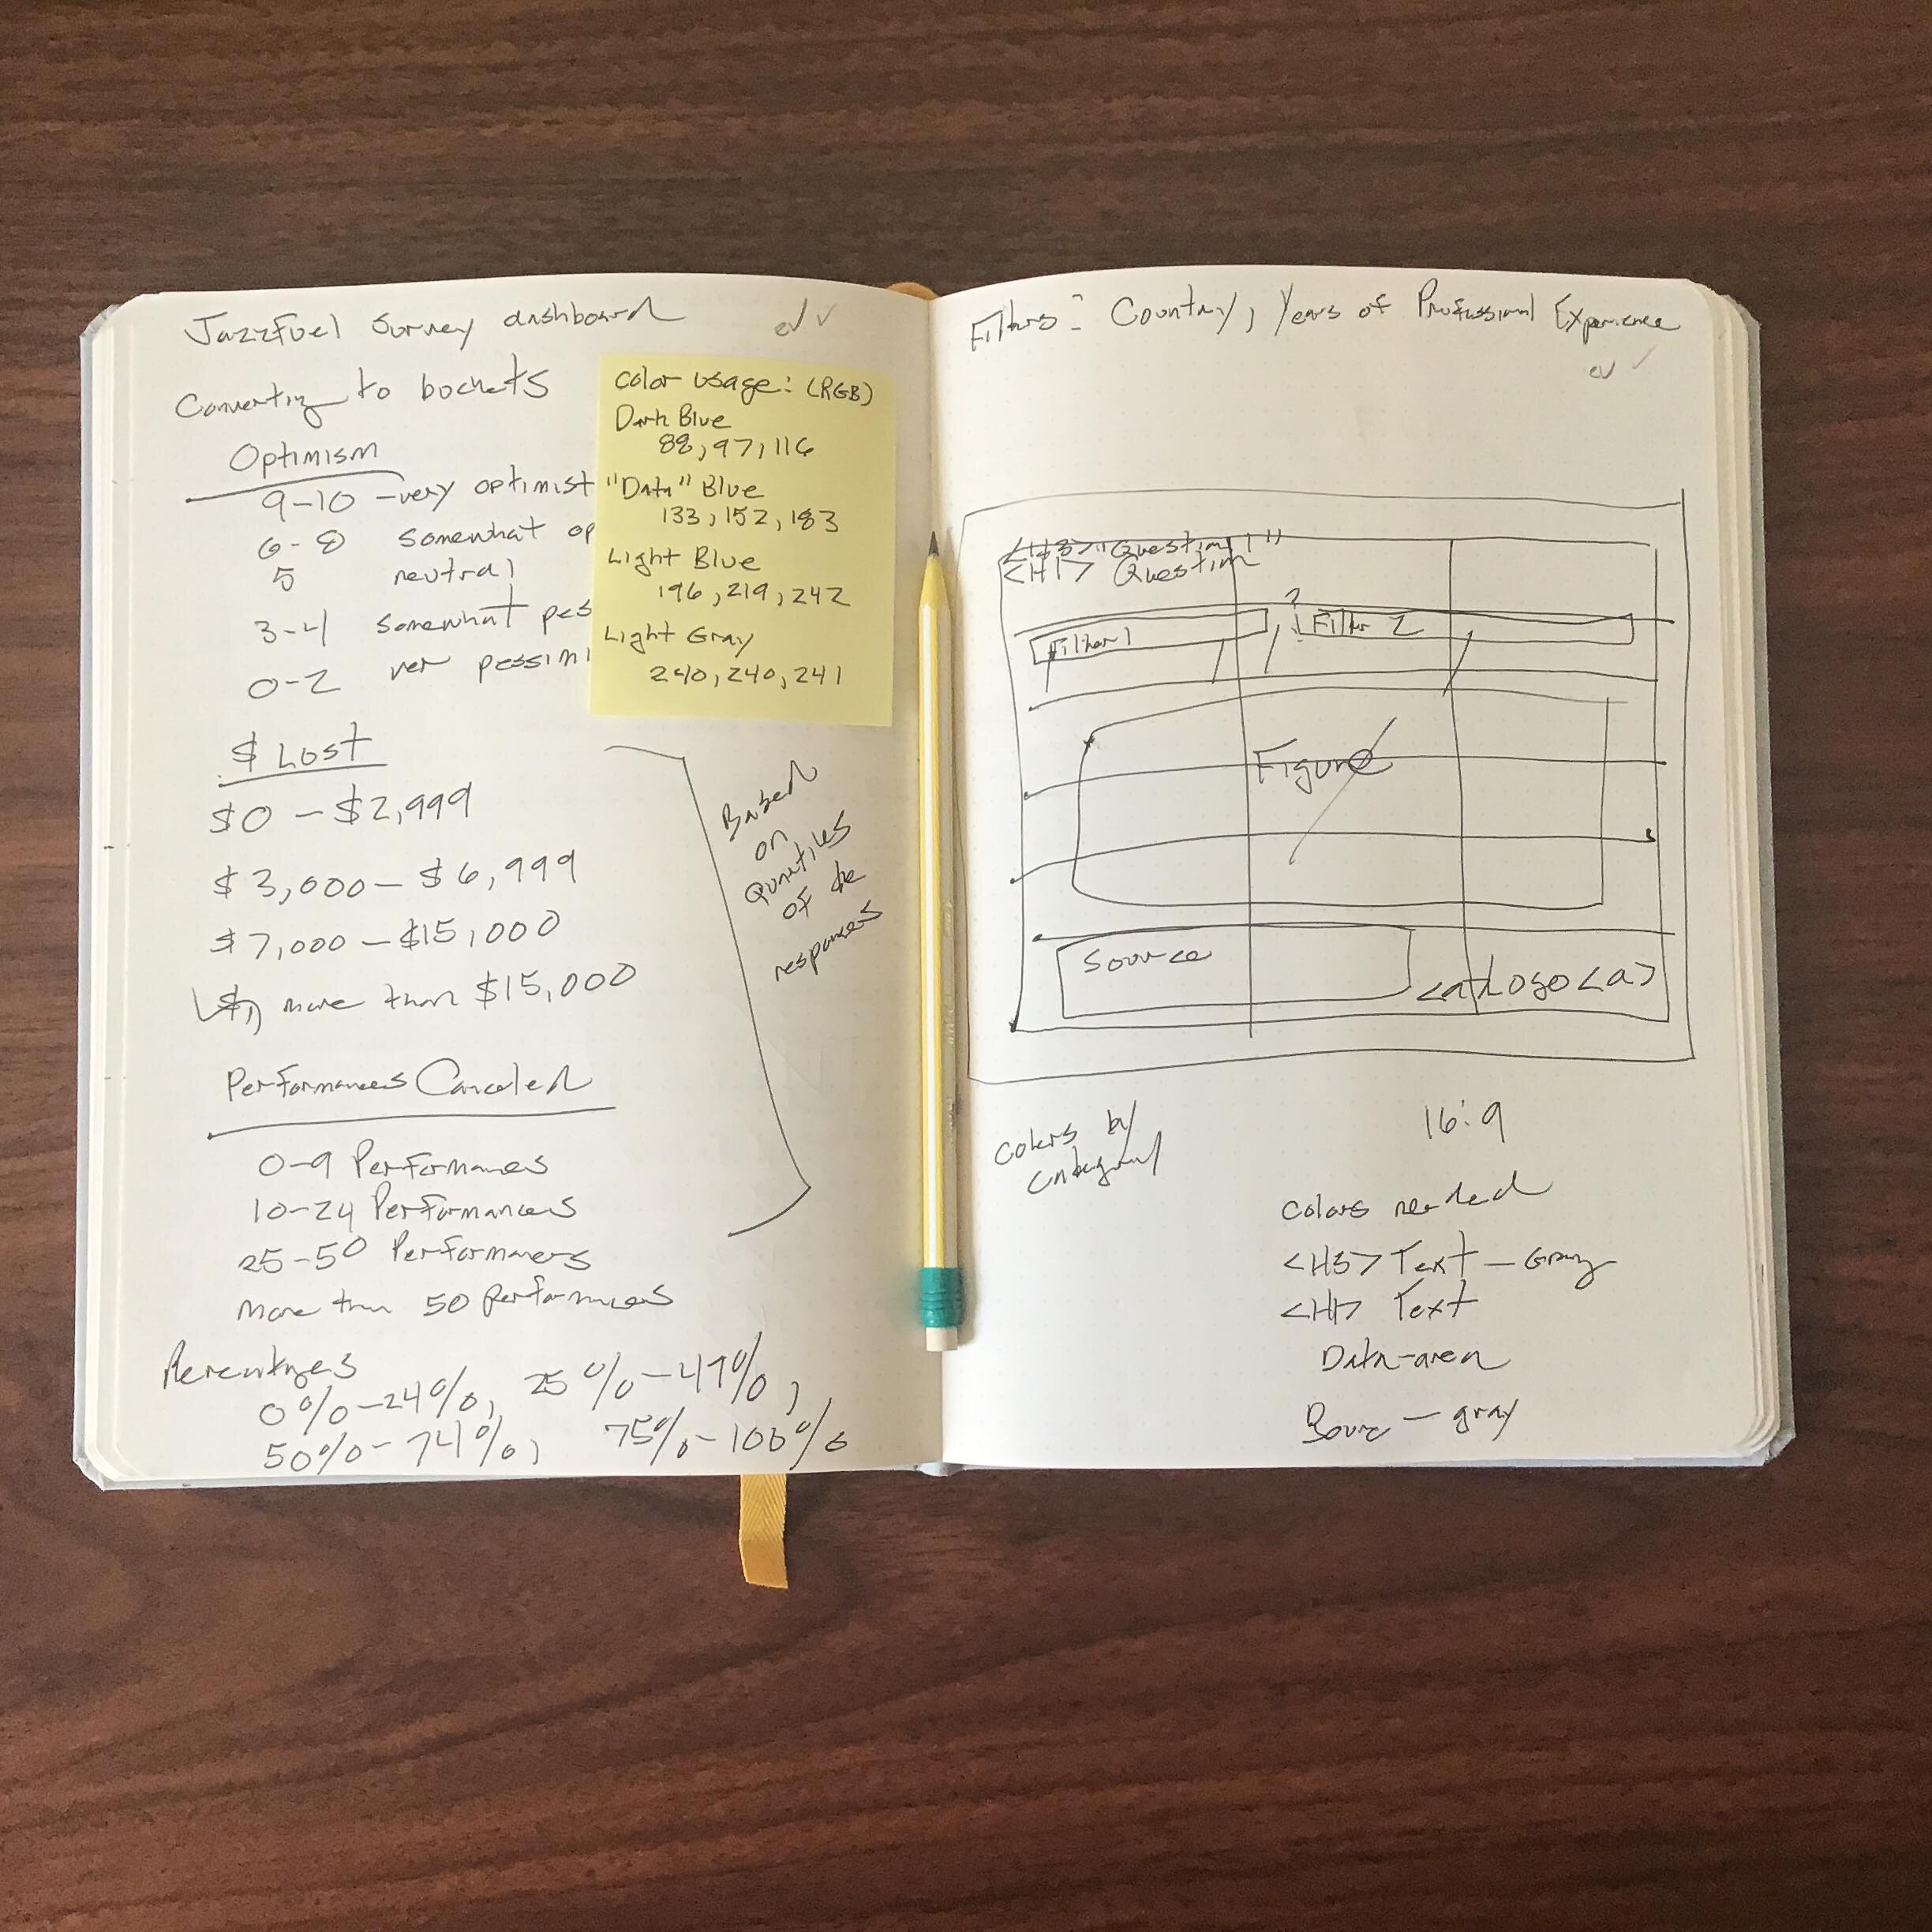 JazzFuel Survey dashboard
Converting to buckets
Optimism
9-10 - very optimist
6-8 somewhat op
5 neutral
3-4 somewhat pes
0-2 ver pessimi
$ Lost
$0 - $2,999
$3,000 - $6,999
$7,000 - $15,000
more than $15,000
Based
on
Quartiles
of the
responses
Performances Canceled
0-9 Performances
10-24 Performances
25-50 Performances
more than 50 performances
Percentages
0%-24%, 25%-49%,
50%-74%, 75%-100%
Color usage: (RGB)
Dark Blue
88, 97, 116
"Data" Blue
133, 152, 183
Light Blue
196, 219, 242
Light Gray
240, 240, 241
Filters: Country, Years of Professional Experience
<H3> "Question 1"
<H1> Question
Filter 1 ? Filter 2
Figure
Source
<a> Logo <a>
Colors by
16:9
Colors needed
<H3> Text - Gray
<H1> Text
Data-area
gray